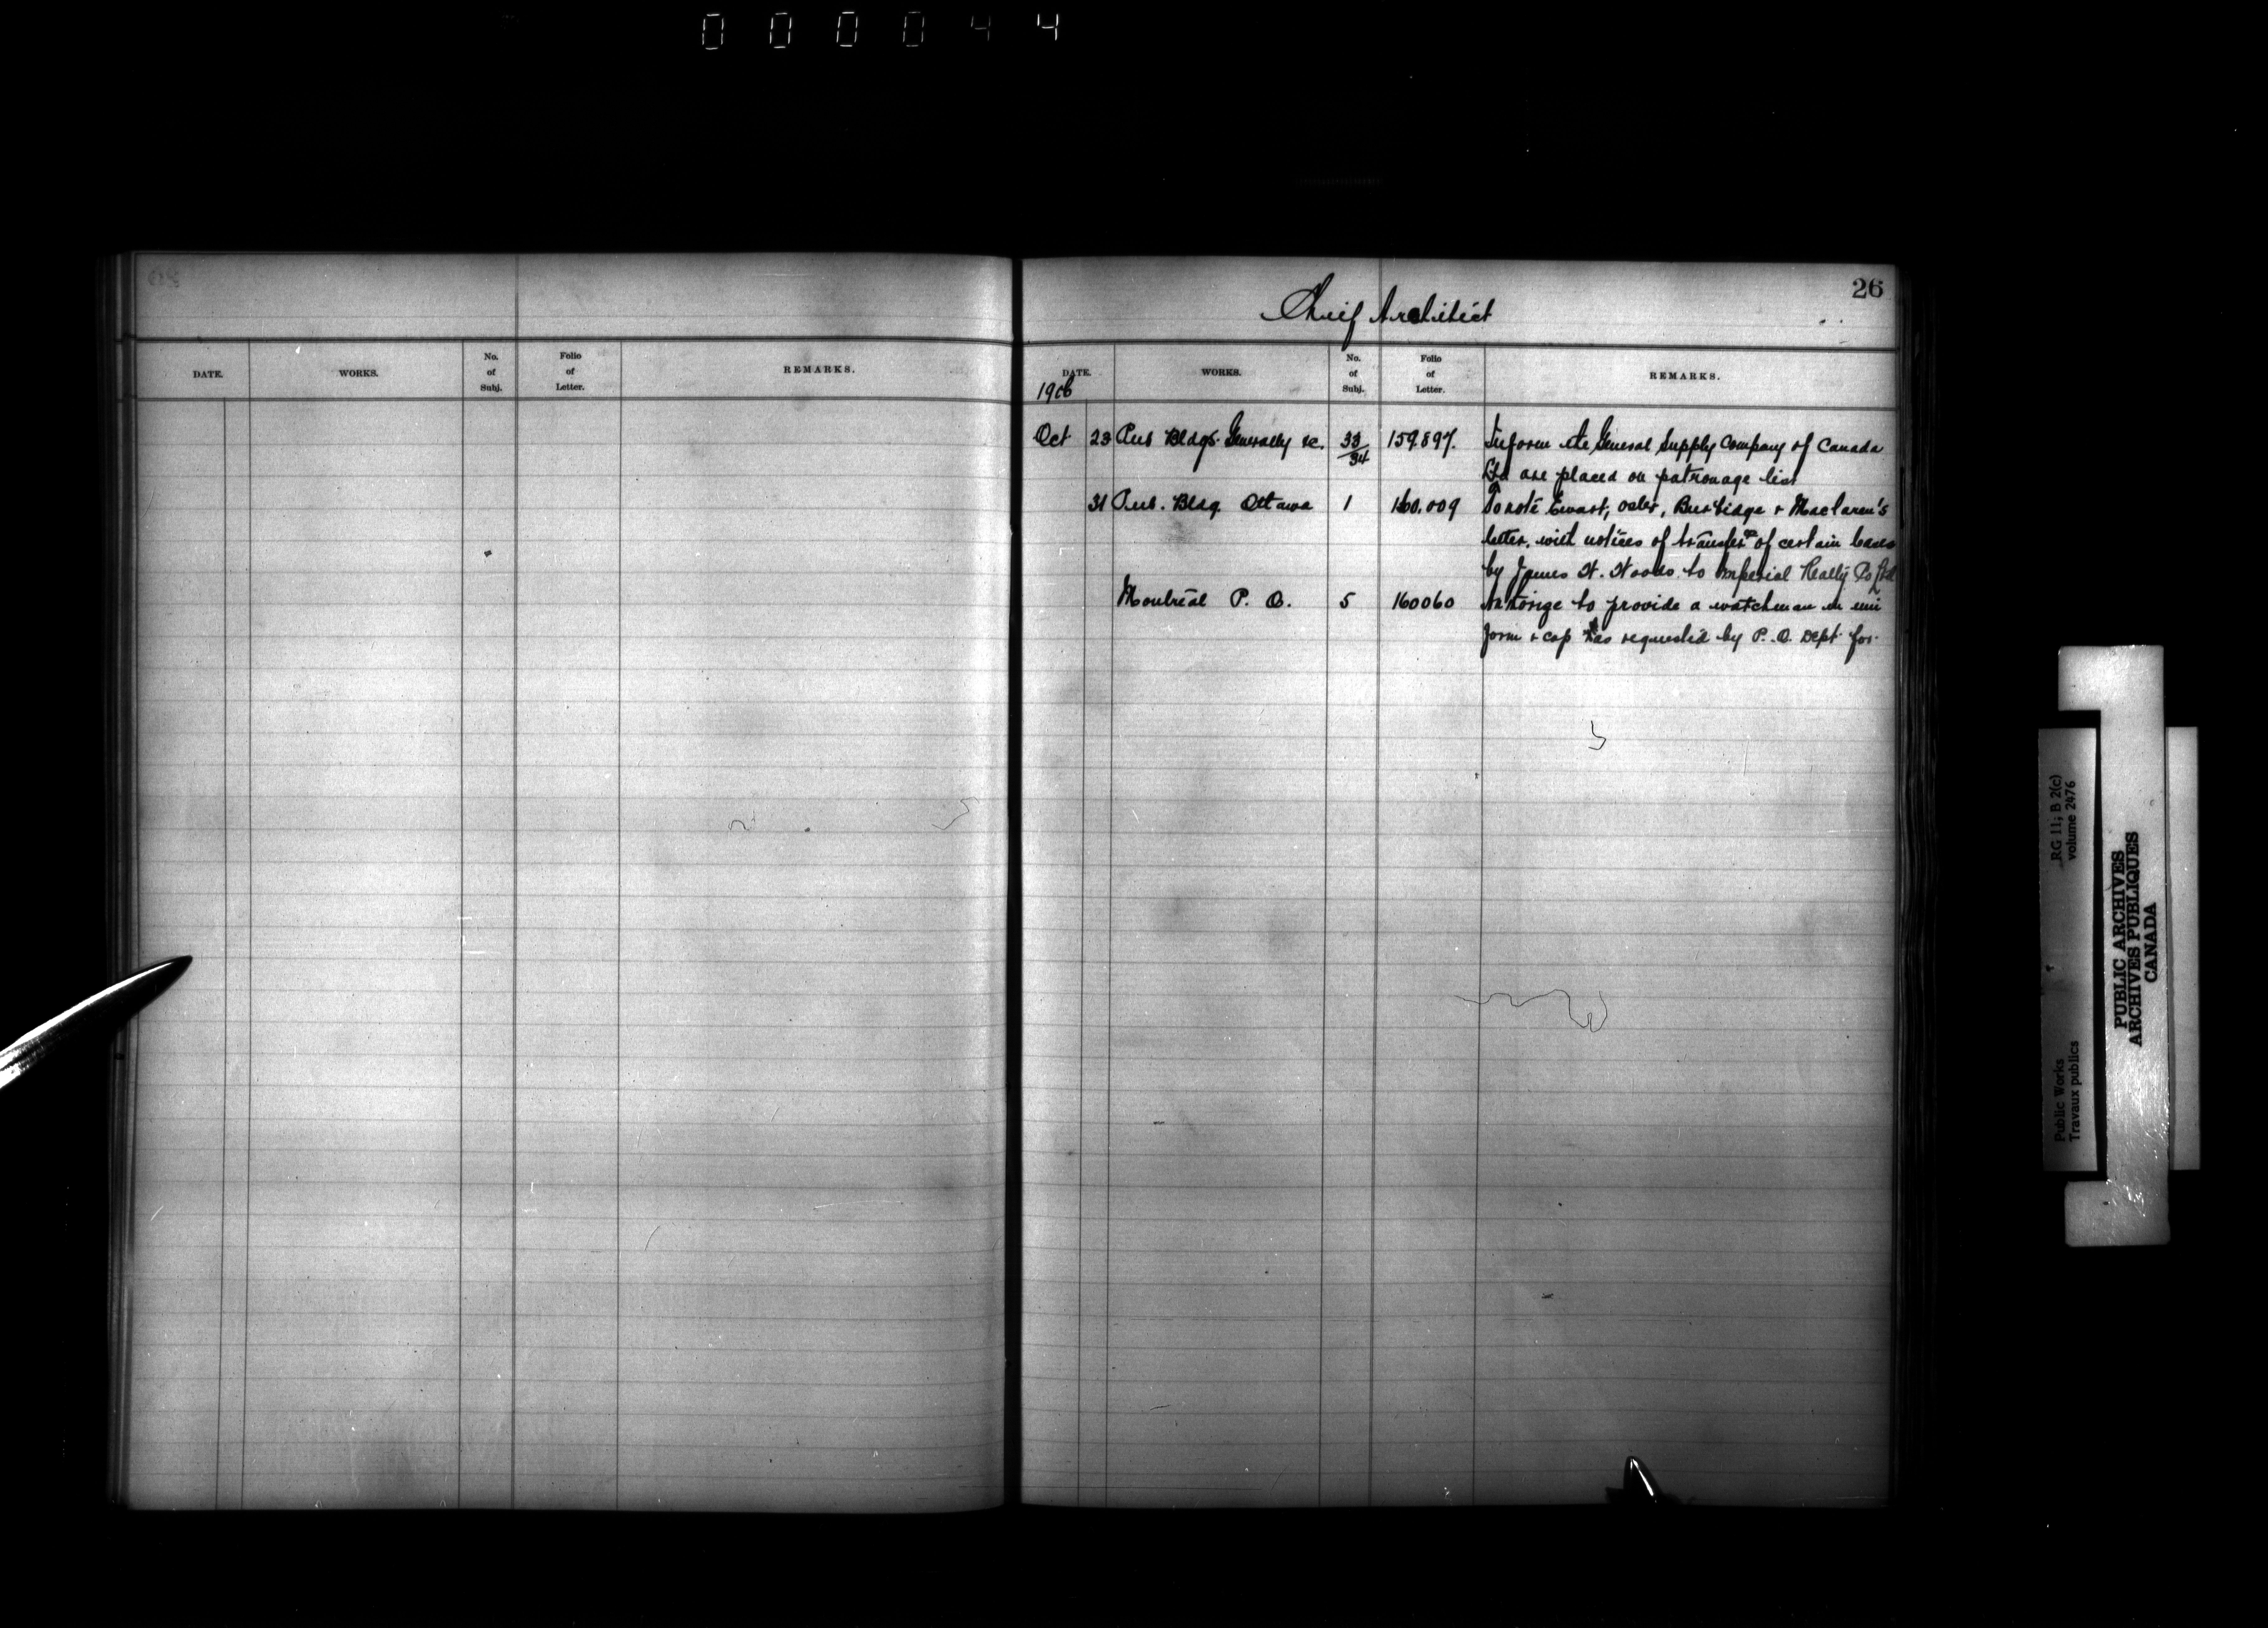 000044
26
Chief Architect
DATE. WORKS. No. of Subj. Folio of Letter. REMARKS.
DATE. WORKS. No. of Subj. Folio of Letter. REMARKS.
1906
Oct 23 Pub Bldgs. Generally &c. 33/34 159.897. Inform the General Supply Company of Canada
Ltd are placed on patronage list
31 Pub. Bldg. Ottawa 1 160.009 To note Ewart, Osler, Burbidge & Maclaren's
letter, with notices of transfer of certain leases
by James W. Woods to Imperial Realty Co Ltd
Montreal P. O. 5 160060 to provide a watchman in uni
form & cap as requested by P. O. Dept for
RG 11; B 2(c)
volume 2476
Public Works
Travaux publics
PUBLIC ARCHIVES
ARCHIVES PUBLIQUES
CANADA